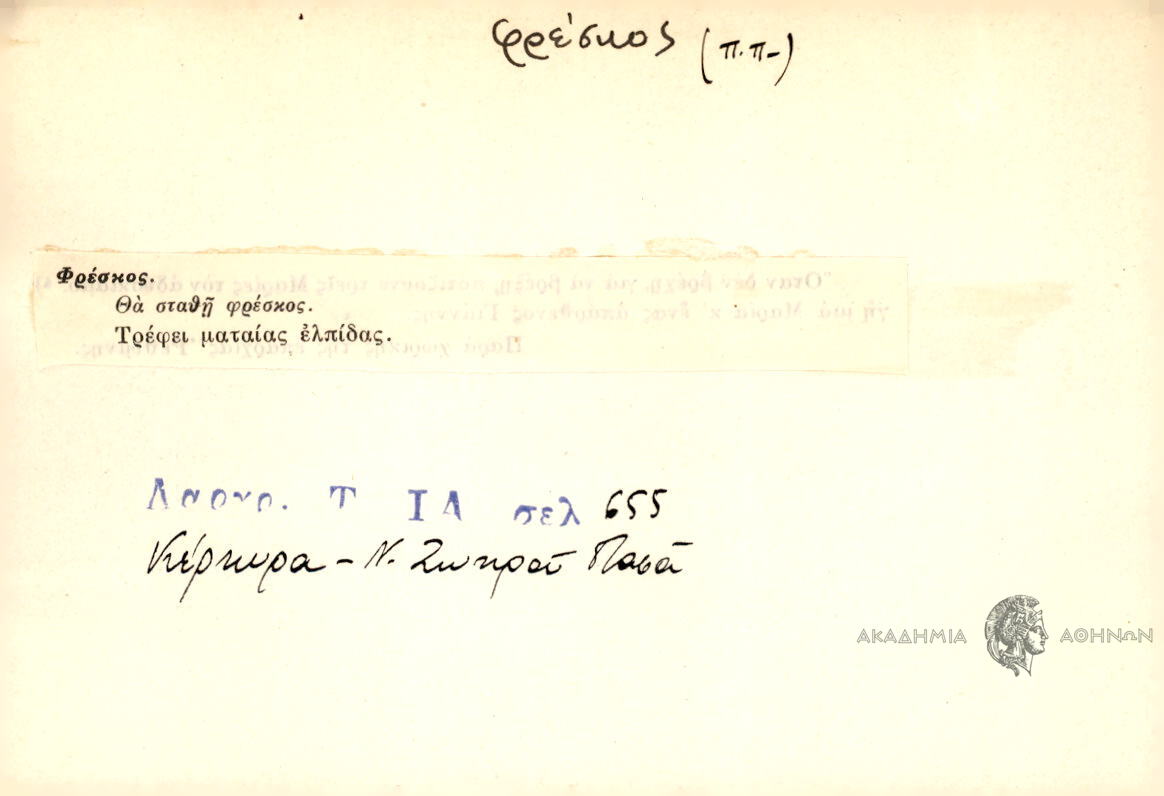 φρέσκος (π.π-)
Φρέσκος.
Θὰ σταθῇ φρέσκος.
Τρέφει ματαίας ἐλπίδας.
Λαογρ. Τ ΙΑ σελ 655
Κέρκυρα - Ν.
ΑΚΑΔΗΜΙΑ ΑΘΗΝΩΝ